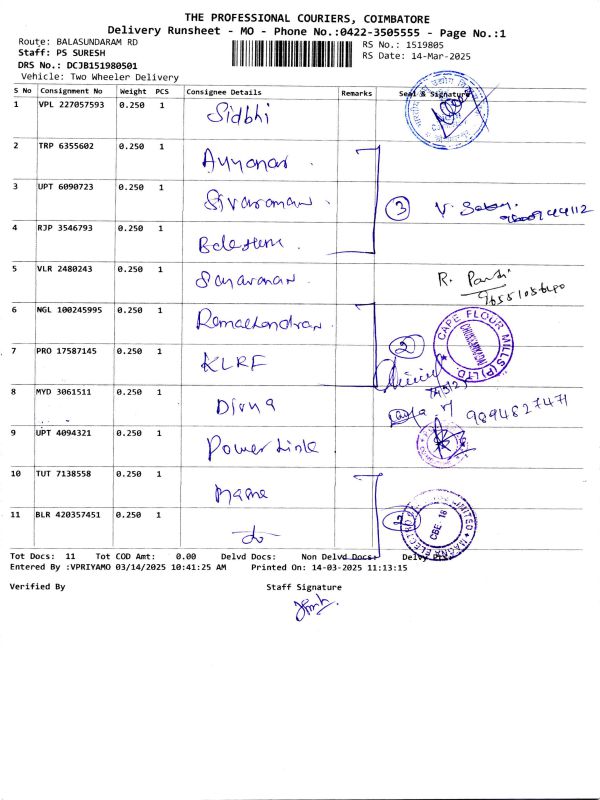 THE PROFESSIONAL COURIERS, COIMBATORE
Delivery Runsheet - MO - Phone No.:0422-3505555 - Page No.:1
Route: BALASUNDARAM RD RS No.: 1519805
Staff: PS SURESH RS Date: 14-Mar-2025
DRS No.: DCJB151980501
Vehicle: Two Wheeler Delivery
S No Consignment No Weight PCS Consignee Details Remarks Seal & Signature
1 VPL 227057593 0.250 1 Sidbhi
2 TRP 6355602 0.250 1 Ayyanar
3 UPT 6090723 0.250 1 Sivaraman 3
4 RJP 3546793 0.250 1
5 VLR 2480243 0.250 1 Saravanan
6 NGL 100245995 0.250 1 Ramachandran CAPE FLOUR MILLS (P) LTD.
7 PRO 17587145 0.250 1 KLRF 2
8 MYD 3061511 0.250 1 Diana 9894827471
9 UPT 4094321 0.250 1 Power Link
10 TUT 7138558 0.250 1 magna
11 BLR 420357451 0.250 1 CBE 18
Tot Docs: 11 Tot COD Amt: 0.00 Delvd Docs: Non Delvd Docs:
Entered By :VPRIYAMO 03/14/2025 10:41:25 AM Printed On: 14-03-2025 11:13:15
Verified By Staff Signature